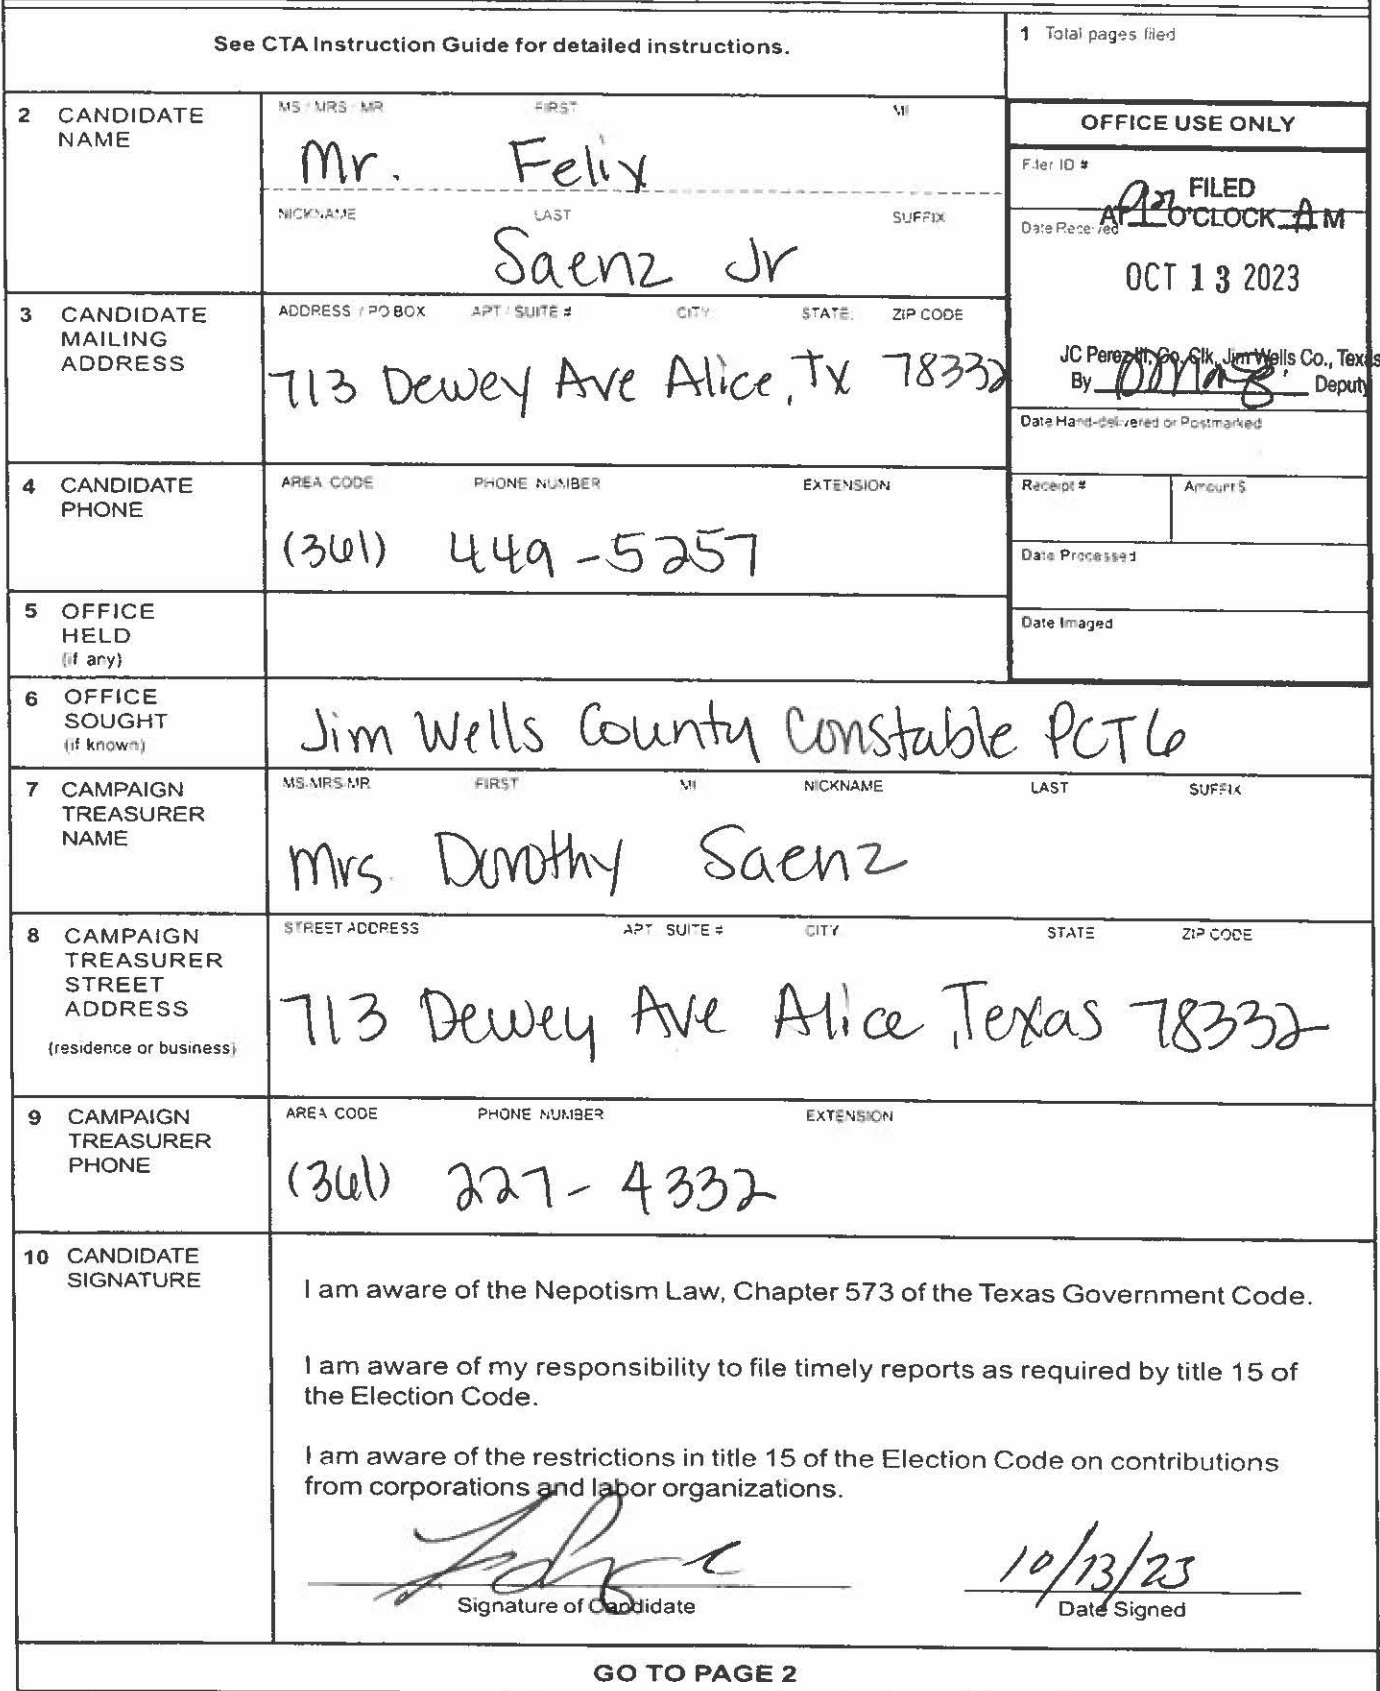 See CTA Instruction Guide for detailed instructions.
1 Total pages filed
2 CANDIDATE NAME
MS / MRS / MR FIRST MI
Mr. Felix
NICKNAME LAST SUFFIX
Saenz Jr
OFFICE USE ONLY
Filer ID #
FILED
AT O'CLOCK A M
Date Received
OCT 13 2023
JC Perez III, Co. Clk, Jim Wells Co., Texas
By Deputy
Date Hand-delivered or Postmarked
Receipt # Amount $
Date Processed
Date Imaged
3 CANDIDATE MAILING ADDRESS
ADDRESS / PO BOX APT / SUITE # CITY STATE ZIP CODE
713 Dewey Ave Alice, Tx 78332
4 CANDIDATE PHONE
AREA CODE PHONE NUMBER EXTENSION
(361) 449-5257
5 OFFICE HELD (if any)
6 OFFICE SOUGHT (if known)
Jim Wells County Constable PCT 6
7 CAMPAIGN TREASURER NAME
MS/MRS/MR FIRST MI NICKNAME LAST SUFFIX
Mrs. Dorothy Saenz
8 CAMPAIGN TREASURER STREET ADDRESS
(residence or business)
STREET ADDRESS APT SUITE # CITY STATE ZIP CODE
713 Dewey Ave Alice, Texas 78332
9 CAMPAIGN TREASURER PHONE
AREA CODE PHONE NUMBER EXTENSION
(361) 227-4332
10 CANDIDATE SIGNATURE
I am aware of the Nepotism Law, Chapter 573 of the Texas Government Code.
I am aware of my responsibility to file timely reports as required by title 15 of
the Election Code.
I am aware of the restrictions in title 15 of the Election Code on contributions
from corporations and labor organizations.
10/13/23
Signature of Candidate Date Signed
GO TO PAGE 2